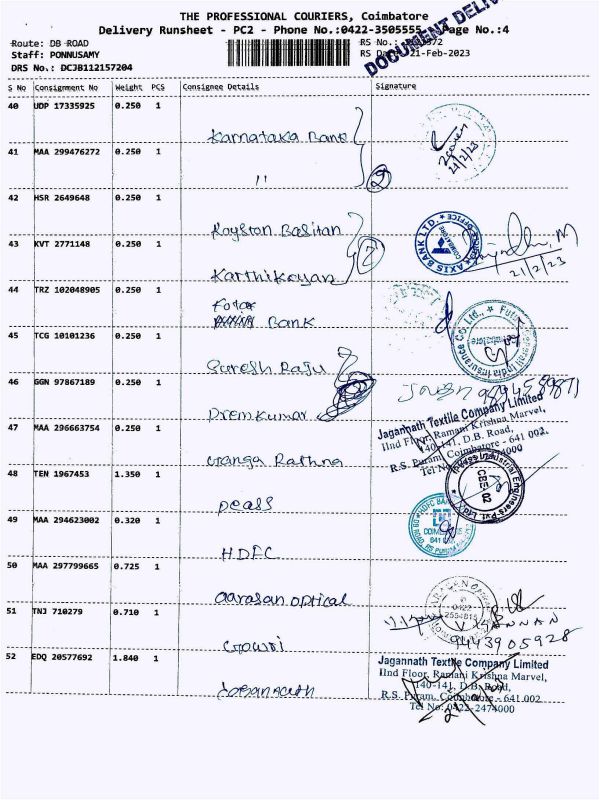 THE PROFESSIONAL COURIERS, Coimbatore
Delivery Runsheet - PC2 - Phone No.:0422-3505555 Page No.:4
Route: DB ROAD
Staff: PONNUSAMY
DRS No.: DCJB112157204
RS No.:
RS Date: 21-Feb-2023
DOCUMENT
S No Consignment No Weight PCS Consignee Details Signature
40 UDP 17335925 0.250 1
Karnataka Bank
41 MAA 299476272 0.250 1
"
2
21/2/23
42 HSR 2649648 0.250 1
AXIS BANK LTD.
43 KVT 2771148 0.250 1
Karthikeyan
2
21/2/23
44 TRZ 102048905 0.250 1
Bank
45 TCG 10101236 0.250 1
Suresh Raju
Future Generali India Insurance Co. Ltd.,
46 GGN 97867189 0.250 1
Premkumar
47 MAA 296663754 0.250 1
Jagannath Textile Company Limited
IInd Floor, Ramani Krishna Marvel,
140-141, D.B. Road,
R.S. Puram, Coimbatore - 641 002.
Tel No
Rathna
48 TEN 1967453 1.350 1
Industrial Engineers Pvt. Ltd
CBE 02
49 MAA 294623002 0.320 1
HDFC BANK
641 002
HDFC
50 MAA 297799665 0.725 1
optical
51 TNJ 710279 0.710 1
0422
V. KANNAN
9443905928
Gowri
52 EDQ 20577692 1.840 1
Jagannath Textile Company Limited
IInd Floor, Ramani Krishna Marvel,
140-141, D.B. Road,
R.S. Puram, Coimbatore - 641 002
Tel No: 0422-2474000